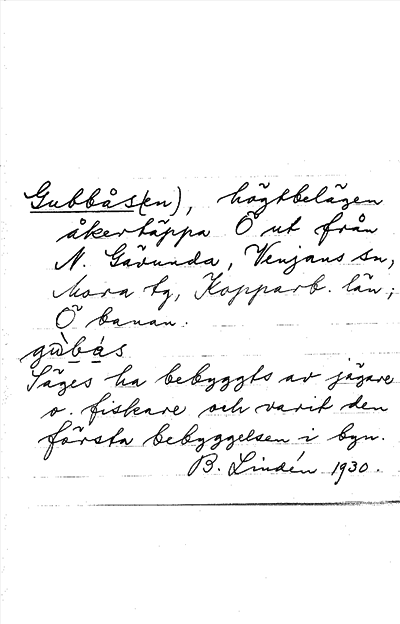 Gubbås(en), högtbelägen
åkertäppa Ö ut från
N. Gävunda, Venjans sn,
Mora tg, Kopparb. län;
Ö banan.
gùbás
Säges ha bebyggts av jägare
o. fiskare och varit den
första bebyggelsen i byn.
B. Lindén 1930.